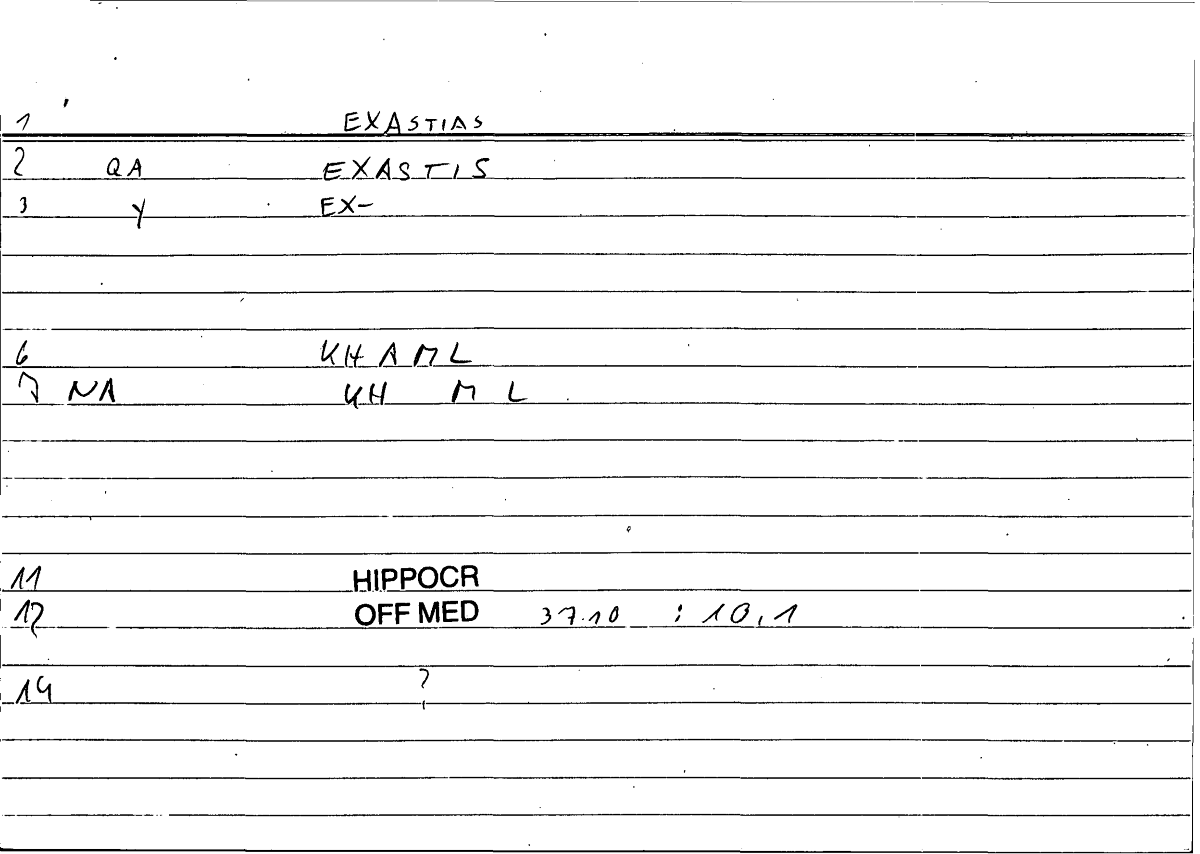 1 EXASTIAS
2 QA EXASTIS
3 Y EX-
6 KHAML
7 NA KH M L
11 HIPPOCR
12 OFF MED 37.10 : 10,1
14 ?